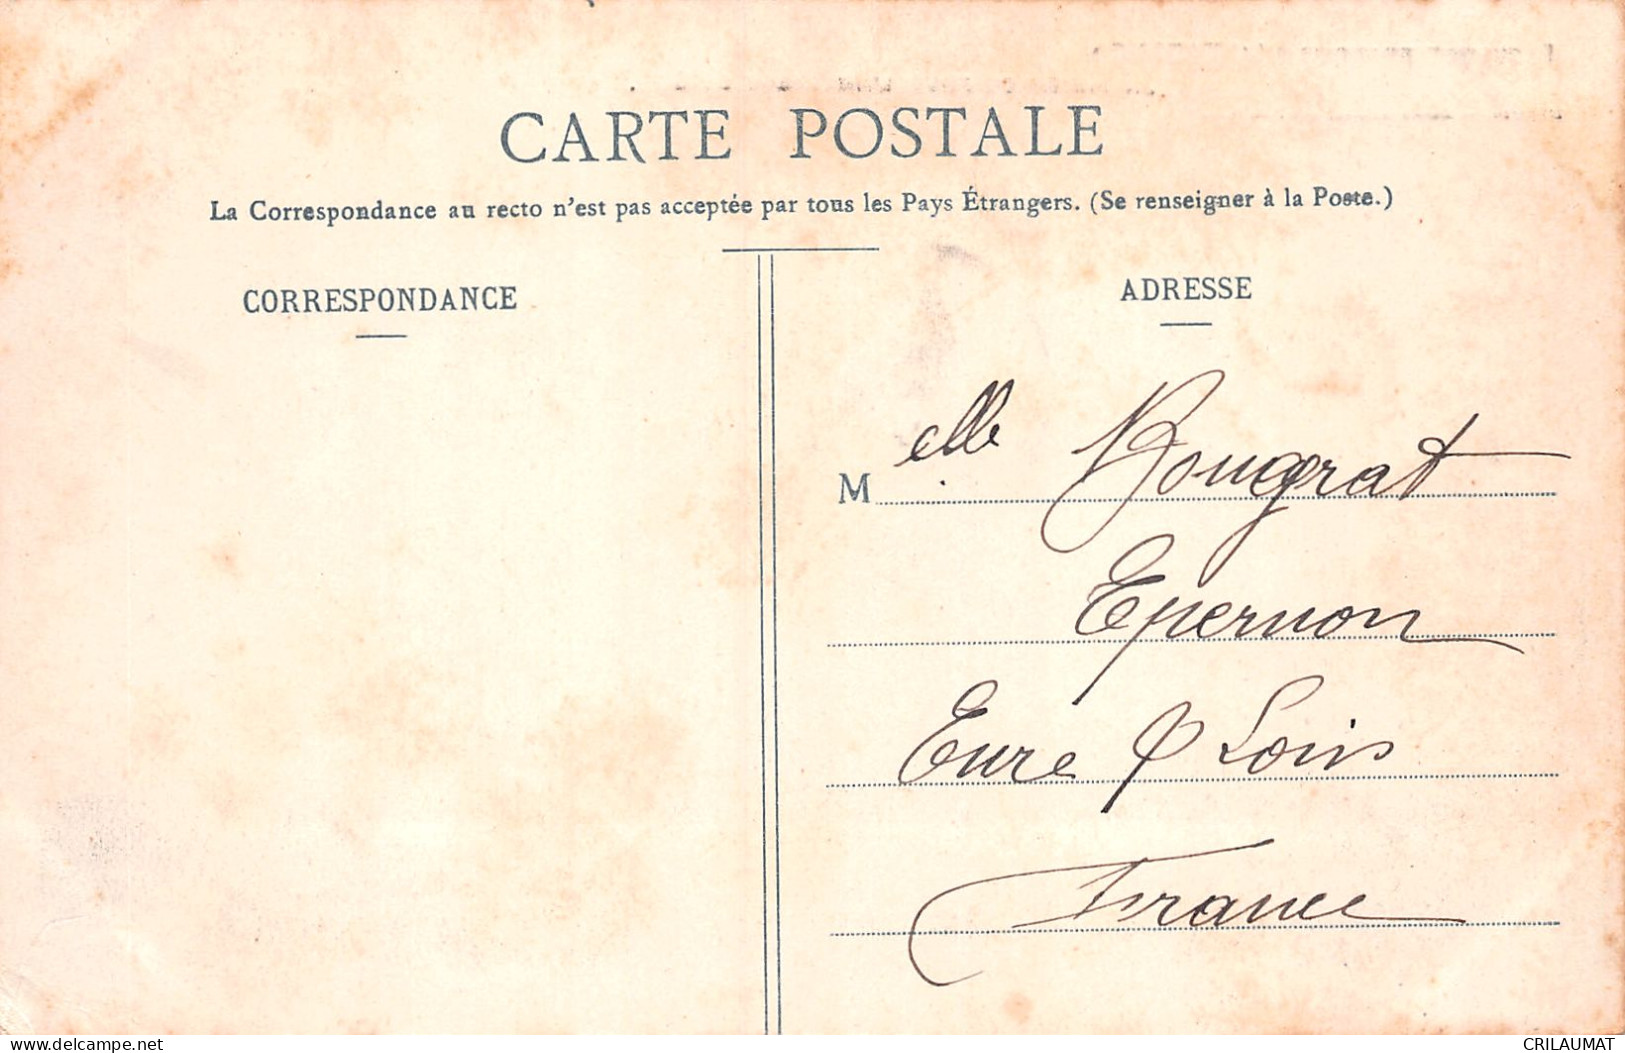 CARTE POSTALE
La Correspondance au recto n'est pas acceptée par tous les Pays Étrangers. (Se renseigner à la Poste.)
CORRESPONDANCE
ADRESSE
Melle Bougrat
Epernon
Eure & Loir
France
www.delcampe.net
CRILAUMAT